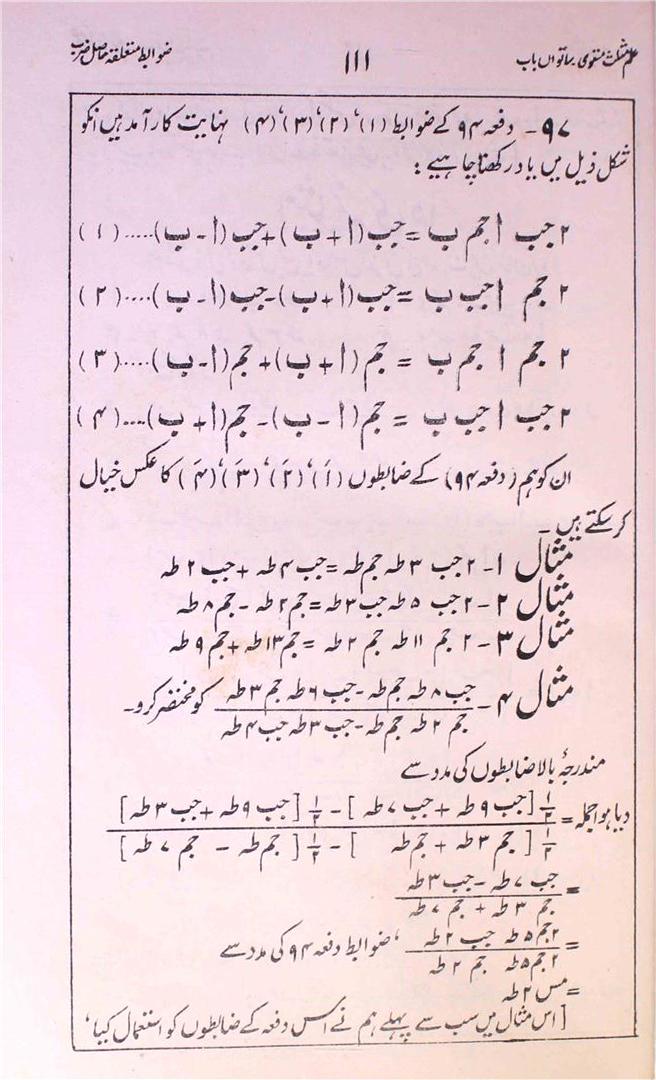 علم مثلث مستوی ساتواں باب ۱۱۱ ضوابط متعلقہ حاصل ضرب
۹۷ - دفعہ ۹۴ کے ضوابط (۱)، (۲)، (۳)، (۴) نہایت کارآمد ہیں انکو
شکل ذیل میں یاد رکھنا چاہیے :
۲ جب ا جم ب = جب (ا + ب) + جب (ا - ب) .... (۱)
۲ جم ا جب ب = جب (ا + ب) - جب (ا - ب) .... (۲)
۲ جم ا جم ب = جم (ا + ب) + جم (ا - ب) .... (۳)
۲ جب ا جب ب = جم (ا - ب) - جم (ا + ب) ... (۴)
ان کو ہم (دفعہ ۹۴) کے ضابطوں (۱َ)، (۲َ)، (۳َ)، (۴َ) کا عکس خیال
کرسکتے ہیں ۔
مثال ۱ - ۲ جب ۳ طہ جم طہ = جب ۴ طہ + جب ۲ طہ
مثال ۲ - ۲ جب ۵ طہ جب ۳ طہ = جم ۲ طہ - جم ۸ طہ
مثال ۳ - ۲ جم ۱۱ طہ جم ۲ طہ = جم ۱۳ طہ + جم ۹ طہ
مثال ۴ - جب ۸ طہ جم طہ - جب ۶ طہ جم ۳ طہ کو مختصر کرو ۔
جم ۲ طہ جم طہ - جب ۳ طہ جب ۴ طہ
مندرجۂ بالا ضابطوں کی مدد سے
دیا ہوا جملہ = ½ [جب ۹ طہ + جب ۷ طہ] - ½ [جب ۹ طہ + جب ۳ طہ]
½ [جم ۳ طہ + جم طہ] - ½ [جم طہ - جم ۷ طہ]
= جب ۷ طہ - جب ۳ طہ
جم ۳ طہ + جم ۷ طہ
= ۲ جم ۵ طہ جب ۲ طہ ، ضوابط دفعہ ۹۴ کی مدد سے
۲ جم ۵ طہ جم ۲ طہ
= مس ۲ طہ
[اس مثال میں سب سے پہلے ہم نے اس دفعہ کے ضابطوں کو استعمال کیا،